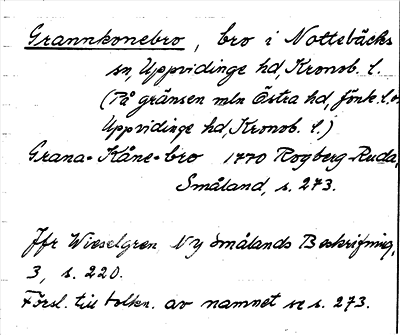 Grannkonebro, bro i Nottebäcks
sn, Uppvidinge hd, Kronob. l.
(På gränsen mln Östra hd, Jönk. l. o.
Uppvidinge hd, Kronob. l.)
Grana-Kåne-bro 1770 Rogberg-Ruda,
Småland, s. 273.
Jfr Wieselgren Ny Smålands Beskrifning,
3, s. 220.
Försl. till tolkn. av namnet se s. 273.